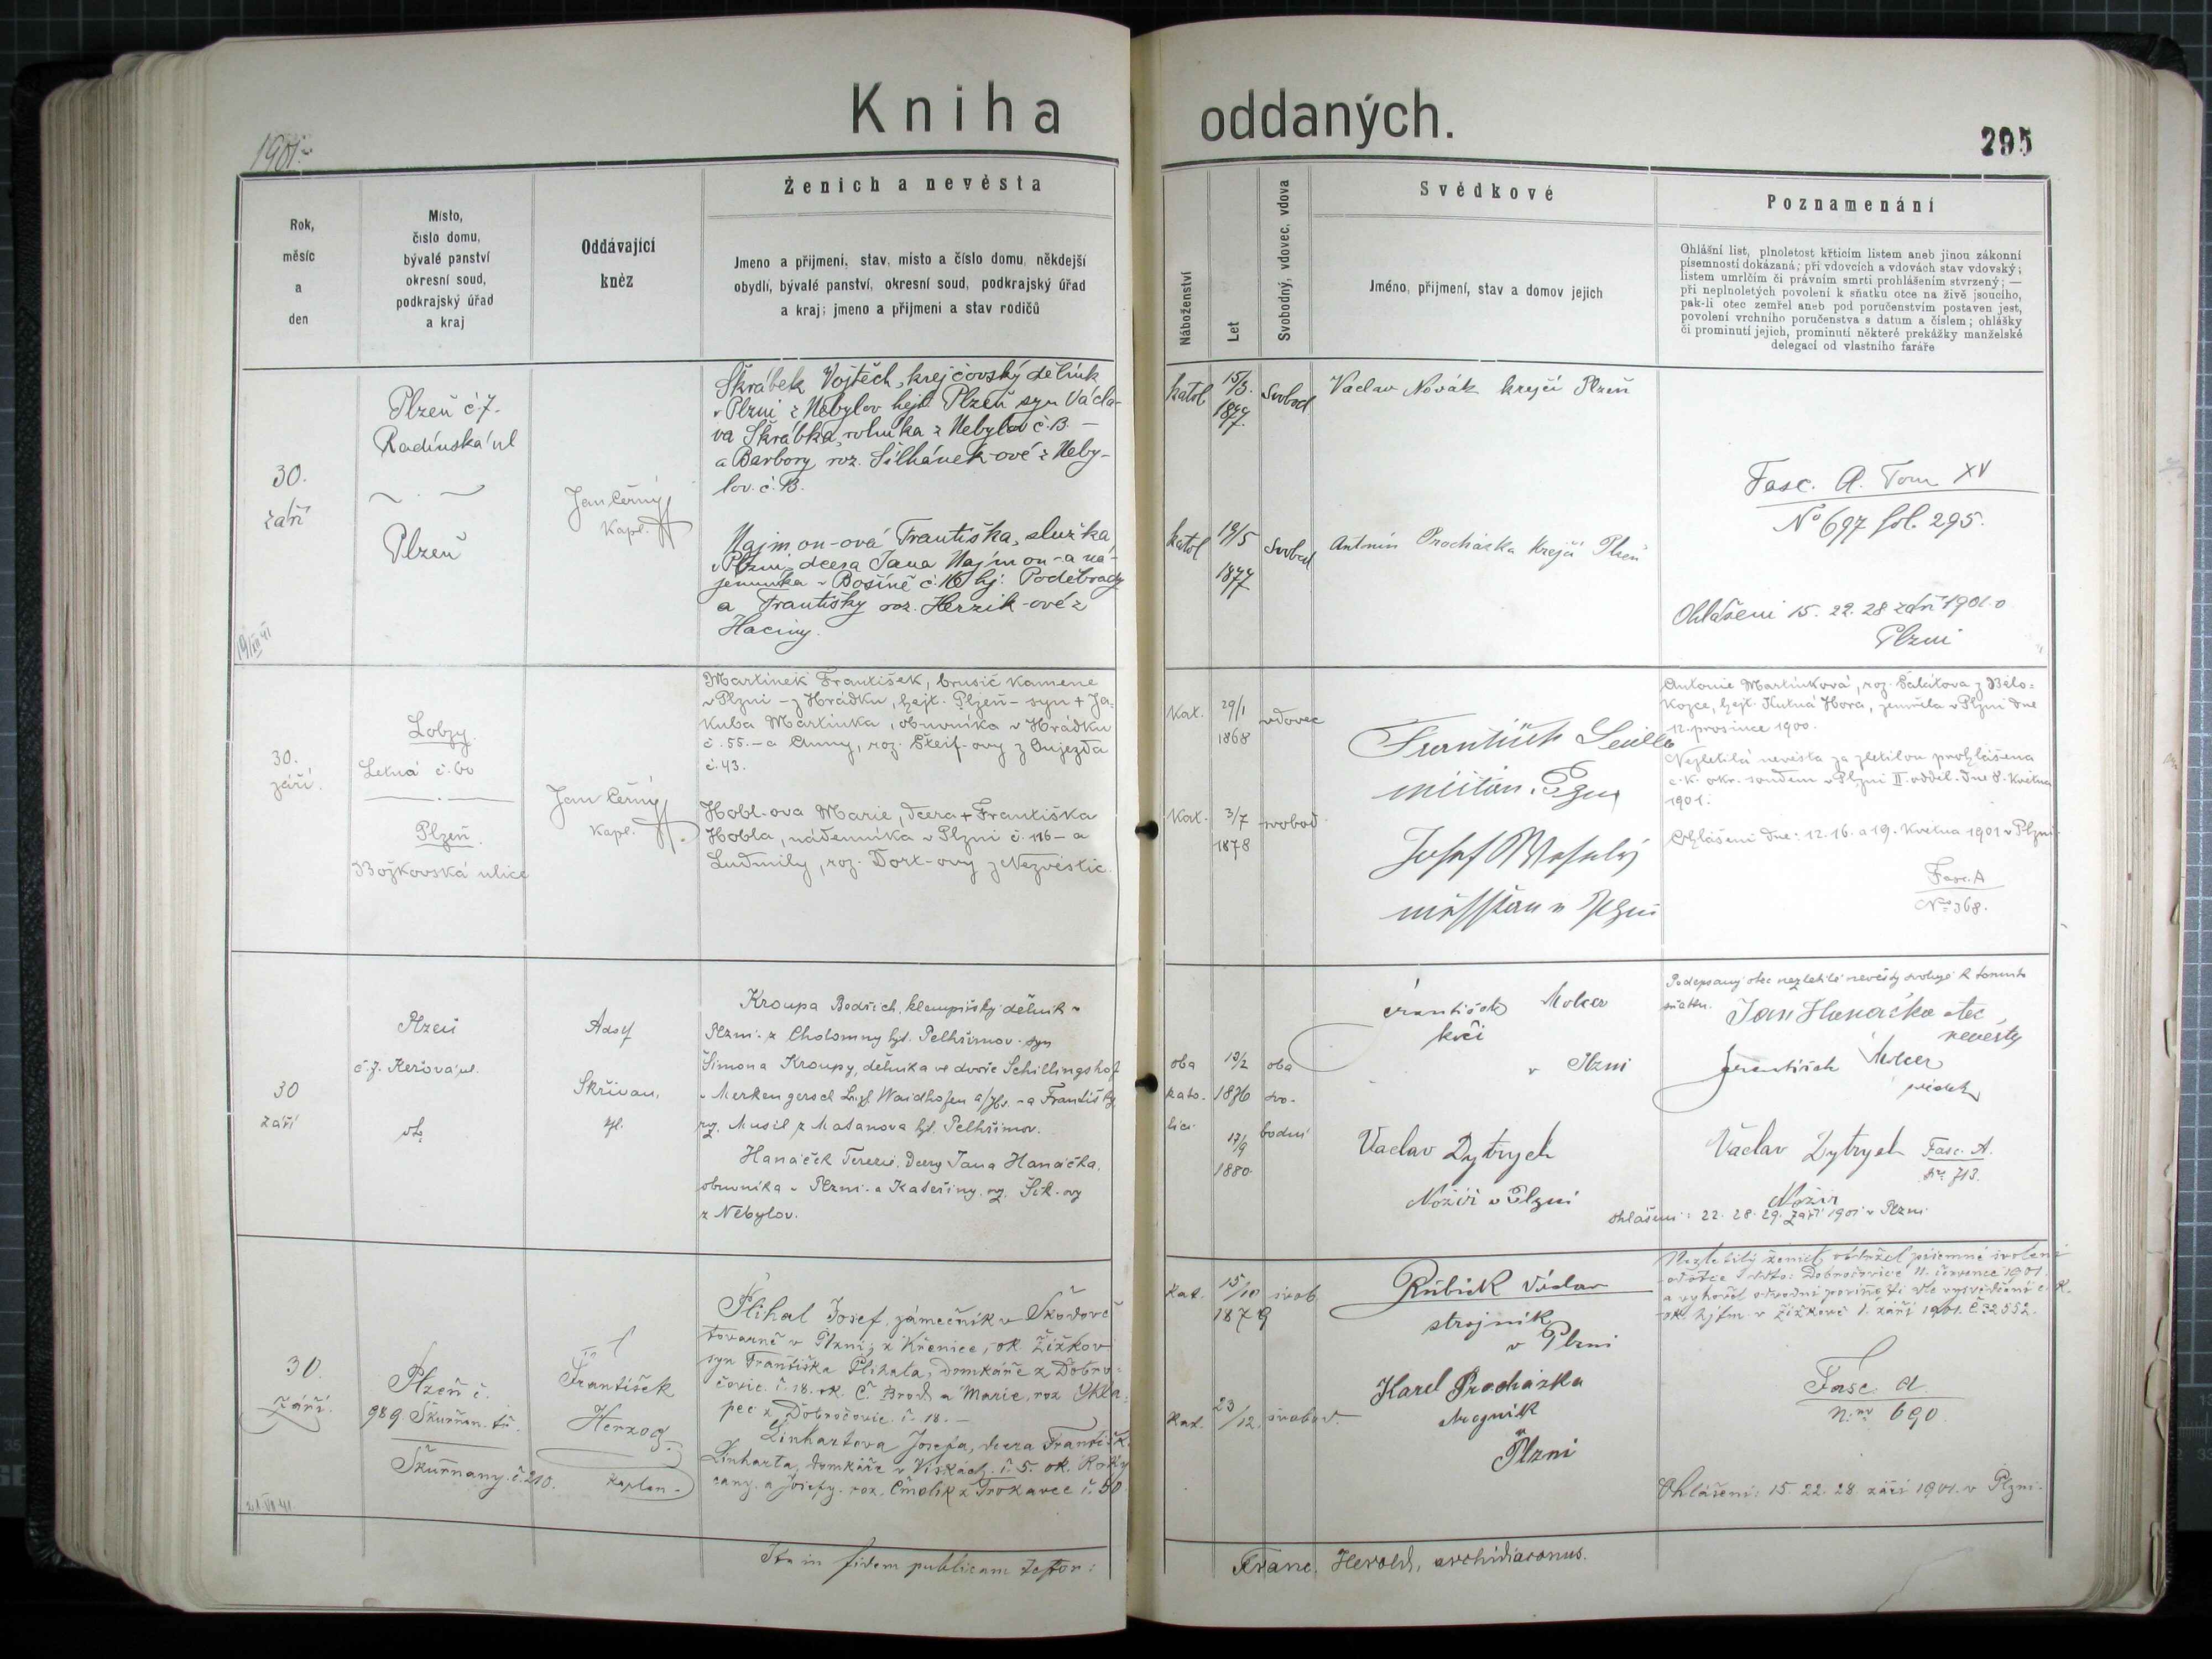 Kniha oddaných.
1901.
295
Ženich a nevěsta
Svědkové
Poznamenání
Rok,
měsíc
a
den
Místo,
číslo domu,
bývalé panství
okresní soud,
podkrajský úřad
a kraj
Oddávající
kněz
Jmeno a přijmeni, stav, misto a číslo domu, někdejší
obydlí, bývalé panství, okresní soud, podkrajský úřad
a kraj; jmeno a přijmeni a stav rodičů
Náboženství
Let
Svobodný, vdovec, vdova
Jméno, přijmení, stav a domov jejich
Ohlášní list, plnoletost křticím listem aneb jinou zákonní
písemností dokázaná; při vdovcích a vdovách stav vdovský;
listem umrlčím či právním smrti prohlášením stvrzený; —
při neplnoletých povolení k sňatku otce na živě jsoucího,
pak-li otec zemřel aneb pod poručenstvím postaven jest,
povolení vrchního poručenstva s datum a číslem; ohlášky
či prominutí jejich, prominutí některé prekážky manželské
delegací od vlastního faráře
30.
září
Plzeň č. 7.
Radínská ul
Plzeň
Jan Černý
Kapl.
Škrábek Vojtěch, krejčovský dělník
v Plzni z Nebylov hejt. Plzeň syn Václa-
va Škrábka, rolníka z Nebylov č. 13. —
a Barbory roz. Šilhánek-ové z Neby-
lov. č. 13.
Najmon-ová Františka, služka
v Plzni, dcera Jana Najmon-a ná-
jemníka v Bošíně č. 16 hj. Poděbrady
a Františky roz. Herzik-ové z
Haciny.
katol 15/3. 1877. svobod
Vaclav Novák krejčí Plzeň
katol 19/5 1877 svobod
Antonín Procházka Krejčí Plzeň
Fasc. A. Tom XV
No 697 fol. 295.
Ohlášeni 15. 22. 28 září 1901. v
Plzni
30.
září.
Lobzy.
Letná č. 60
Plzeň.
Božkovská ulice
Jan Černý
Kapl.
Martínek František, brusič kamene
v Plzni – z Hrádku, hejt. Plzeň – syn + Ja-
kuba Martínka, obuvníka v Hrádku
č. 55. – a Anny, roz. Šteif-ovy z Oujezda
č. 43.
Hobl-ova Marie, dcera + Františka
Hobla, nádenníka v Plzni č. 116 – a
Ludmily, roz. Dort-ovy z Nezvěstic.
Kat. 29/1 1868 vdovec
Kat. 3/7 1878 svobod.
František
Josef Veselý
Antonie Martínková, roz. Šalátova z Bělo-
kozce, hejt. Kutná Hora, zemřela v Plzni dne
12. prosince 1900.
Nezletilá nevěsta za zletilou prohlášena
c. k. okr. soudem v Plzni II. odděl. dne 8. května
1901.
Ohlášeni dne: 12. 16. a 19. května 1901 v Plzni.
Fasc. A
No 368.
30
září
Plzeň
č. 7. Keřová ul.
Adolf
Skřivan,
Kroupa Bedřich, klempířský dělník v
Plzni. z Cholomny hjt. Pelhřimov. syn
Šimona Kroupy, dělníka ve dvoře Schillingshof
v Merkengersch Waidhofen a/Ybs. – a Františky
roz. Musil z Mašanova hjt. Pelhřimov.
Hanáček Terezie, dcery Jana Hanáčka,
obuvníka v Plzni. a Kateřiny. roz. Šik-ovy
z Nebylov.
oba
kato-
líci
13/2
1876
17/9
1880
oba
svo-
bodni
František Molcer
v Plzni
Vaclav Dytrych
Nožíř v Plzni
Podepsaný otec nezletilé nevěsty svoluje k tomuto
sňatku. Jan Hanačka otec
nevěsty
František
svědek
Václav Dytrych
Nožíř
Fasc. A.
No 713.
Ohlášeni: 22. 28. 29. září 1901 v Plzni
30.
září.
Plzeň č.
989. Škurňan. tř.
Škurňany. č. 210.
František
Herzog.
kaplan.
Plihal Josef, zámečník v Škodově
továrně v Plzni; z Křenice, ok. Žižkov
syn Františka Plihala, domkáře z Dobro-
čovic. č. 18. ok. Č. Brod a Marie, roz Chla-
pec z Dobročovic. č. 18. —
Linhartova Josefa, dcera Františk.
Linharta, domkáře v Viskách. č. 5. ok. Roky-
cany. a Josefy. roz. Čmolik z Trokavec č. 50
Kat. 15/10 1879 svob.
Kat. 23/12. svobod.
Rúbick Václav
strojník
v Plzni
Karel Procházka
v
Plzni
Nezletilý ženich obdržel písemné svolení
od otce Dobročovice 11. července 1901.
a vyhověl odvodní povinnosti dle vysvědčení c. k.
ok. hjtm. v Žižkově 1. září 1901. Č. 32552.
Fasc. A
n. 690.
Ohlášeni: 15. 22. 28. září 1901. v Plzni.
Ita in fidem publicam testor:
Franc. Herold, archidiaconus.